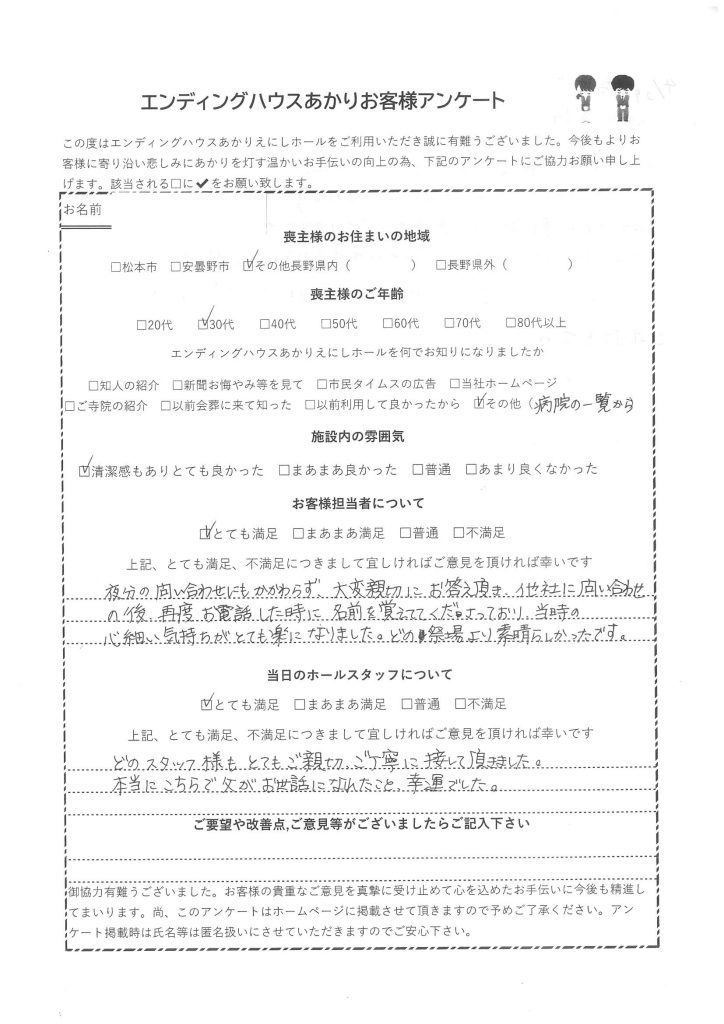 エンディングハウスあかりお客様アンケート
この度はエンディングハウスあかりえにしホールをご利用いただき誠に有難うございました。今後もよりお
客様に寄り沿い悲しみにあかりを灯す温かいお手伝いの向上の為、下記のアンケートにご協力お願い申し上
げます。該当される□に✔をお願い致します。
お名前
喪主様のお住まいの地域
□松本市 □安曇野市 ☑その他長野県内（ ） □長野県外（ ）
喪主様のご年齢
□20代 ☑30代 □40代 □50代 □60代 □70代 □80代以上
エンディングハウスあかりえにしホールを何でお知りになりましたか
□知人の紹介 □新聞お悔やみ等を見て □市民タイムスの広告 □当社ホームページ
□ご寺院の紹介 □以前会葬に来て知った □以前利用して良かったから ☑その他（病院の一覧から）
施設内の雰囲気
☑清潔感もありとても良かった □まあまあ良かった □普通 □あまり良くなかった
お客様担当者について
☑とても満足 □まあまあ満足 □普通 □不満足
上記、とても満足、不満足につきまして宜しければご意見を頂ければ幸いです
夜分の問い合わせにもかかわらず、大変親切にお答え頂き、他社に問い合わせ
の後、再度お電話した時に名前を覚えててくださっており、当時の
心細い気持ちがとても楽になりました。どの祭場より素晴らしかったです。
当日のホールスタッフについて
☑とても満足 □まあまあ満足 □普通 □不満足
上記、とても満足、不満足につきまして宜しければご意見を頂ければ幸いです
どのスタッフ様もとてもご親切、ご丁寧に接して頂きました。
本当にこちらで父がお世話になれたこと、幸運でした。
ご要望や改善点,ご意見等がございましたらご記入下さい
御協力有難うございました。お客様の貴重なご意見を真摯に受け止めて心を込めたお手伝いに今後も精進し
てまいります。尚、このアンケートはホームページに掲載させて頂きますので予めご了承ください。アン
ケート掲載時は氏名等は匿名扱いにさせていただきますのでご安心下さい。